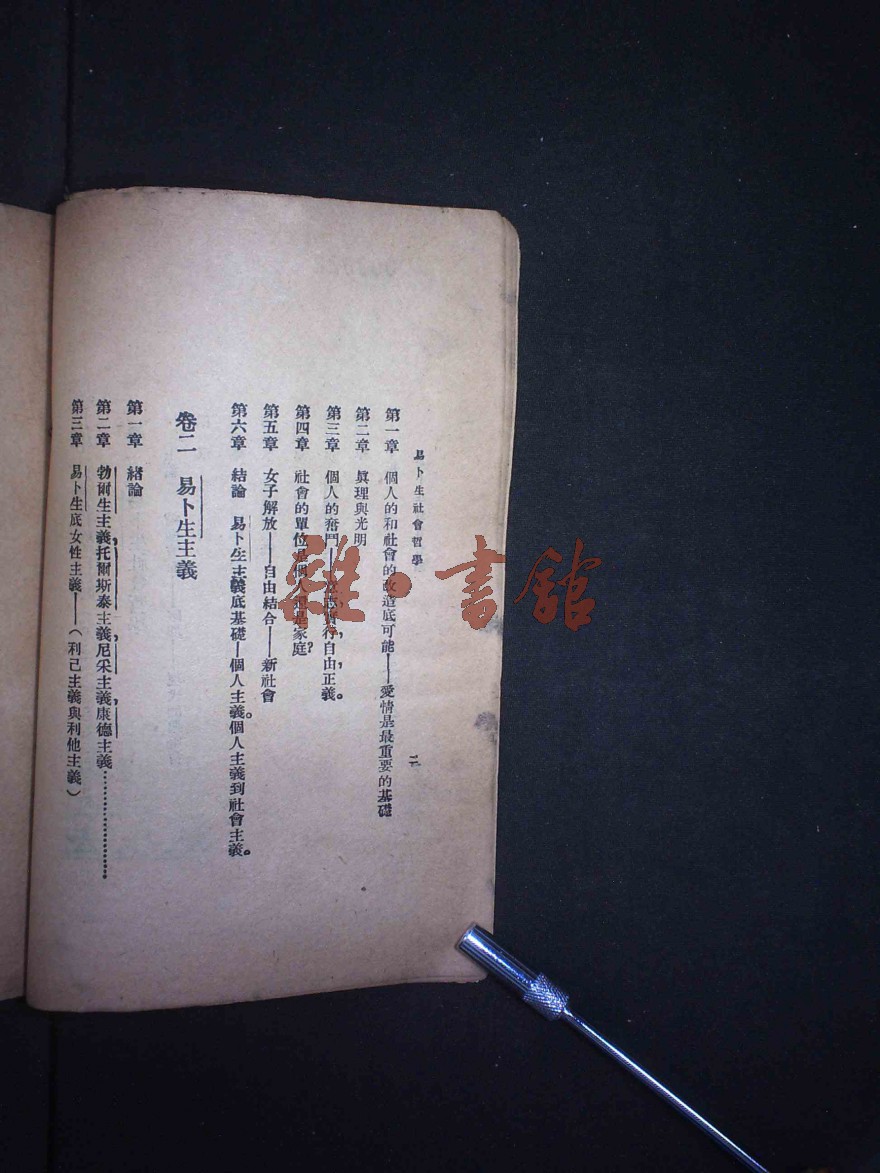 易卜生社會哲學
二
第一章 個人的和社會的改造底可能——愛情是最重要的基礎
第二章 眞理與光明
第三章 個人的奮鬥——實行,自由,正義。
第四章 社會的單位是個人還是家庭?
第五章 女子解放——自由結合——新社會
第六章 結論 易卜生主義底基礎—個人主義。個人主義到社會主義。
卷二 易卜生主義
第一章 緒論
第二章 勃爾生主義,托爾斯泰主義,尼采主義,康德主義……………
第三章 易卜生底女性主義——(利己主義與利他主義)
雜·書館